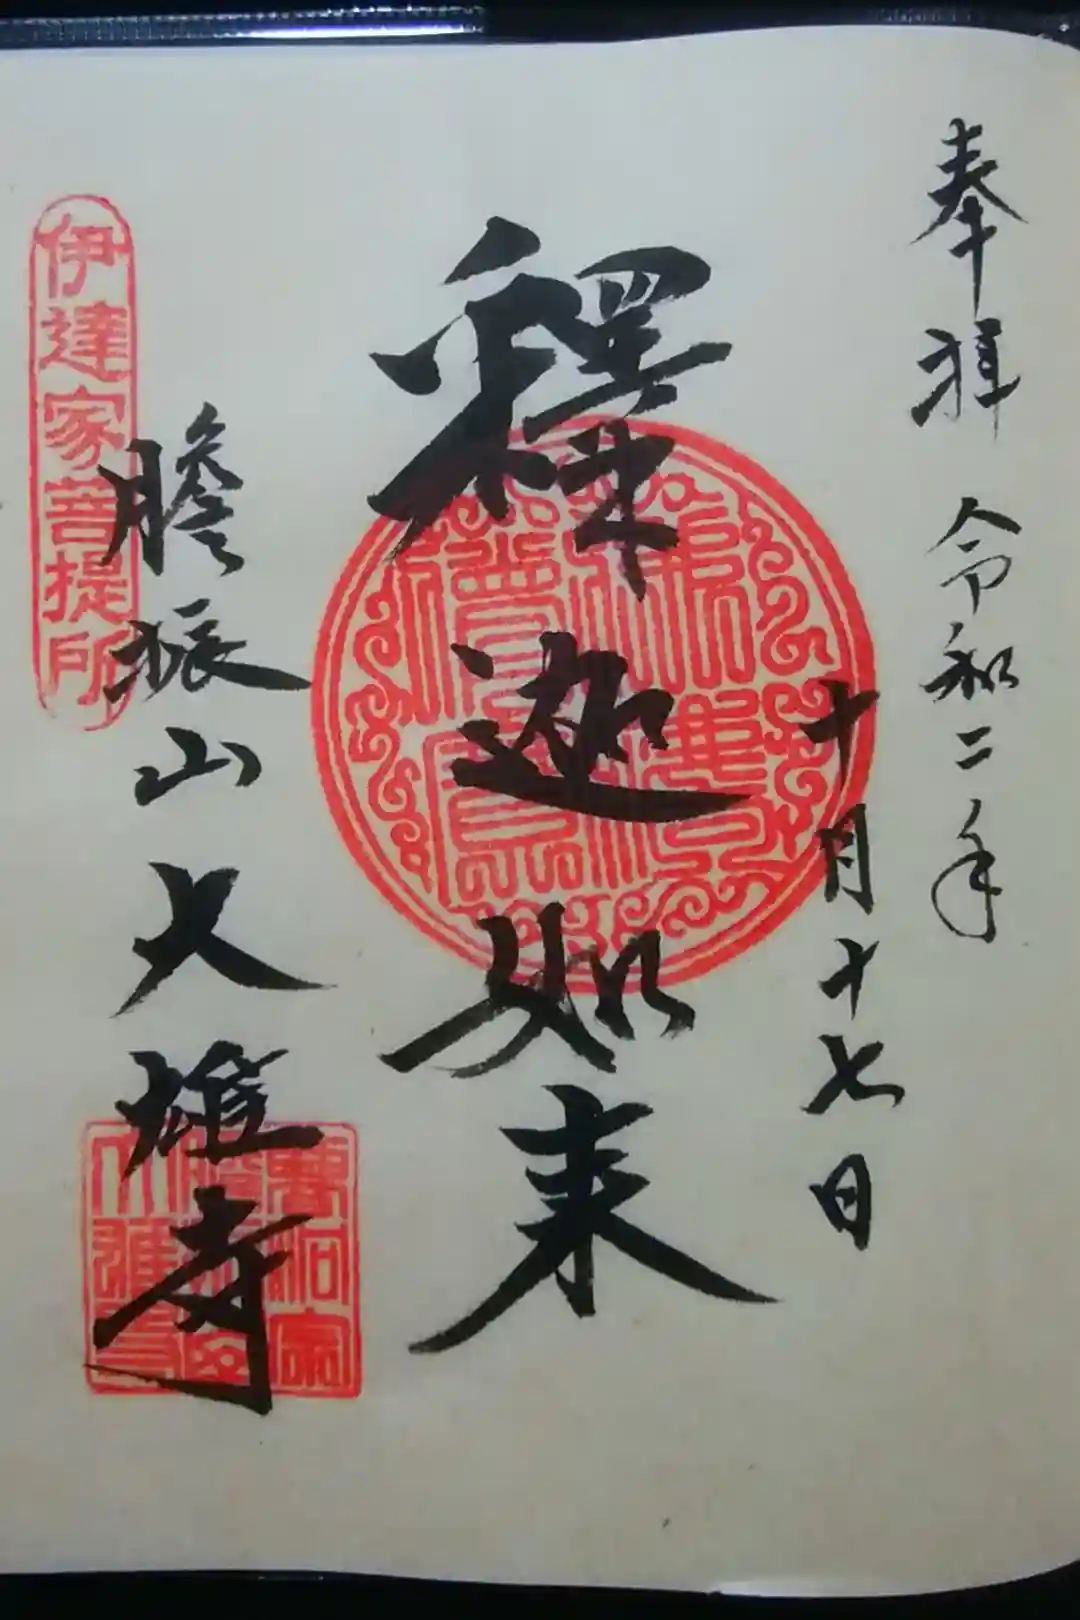 奉拝 令和二年
十月十七日
釋迦如来
膽振山大雄寺
伊達家菩提所